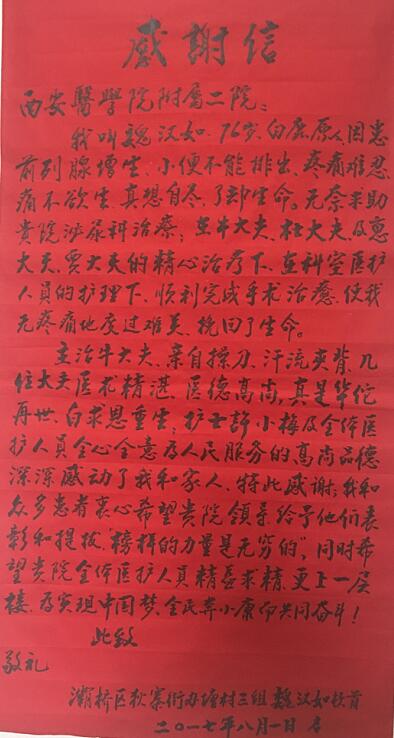 感謝信
西安醫學院附属二院：
我叫魏汉如，76岁，白鹿原人，因患
前列腺增生，小便不能排出，疼痛难忍，
痛不欲生，真想自尽，了却生命。无奈求助
贵院泌尿科治療；在牛大夫、杜大夫及惠
大夫、贾大夫的精心治疗下、在科室医护
人員的护理下、順利完成手术治癒，使我
无疼痛地度过难关，挽回了生命。
主治牛大夫、亲自操刀、汗流夹背、几
位大夫医术精湛、医德高尚，真是华佗
再世、白求恩重生；护士許小梅及全体医
护人员全心全意为人民服务的高尚品德
深深感动了我和家人、特此感谢；我和
众多患者衷心希望贵院领导给予他们表
彰和提拔，"榜样的力量是无穷的"，同时希
望贵院全体医护人員精益求精、更上一层
楼、为实现中国梦、全民奔小康而共同奋斗！
此致
敬礼
灞桥区狄寨街办塘村三组 魏汉如 首
二〇一七年八月一日